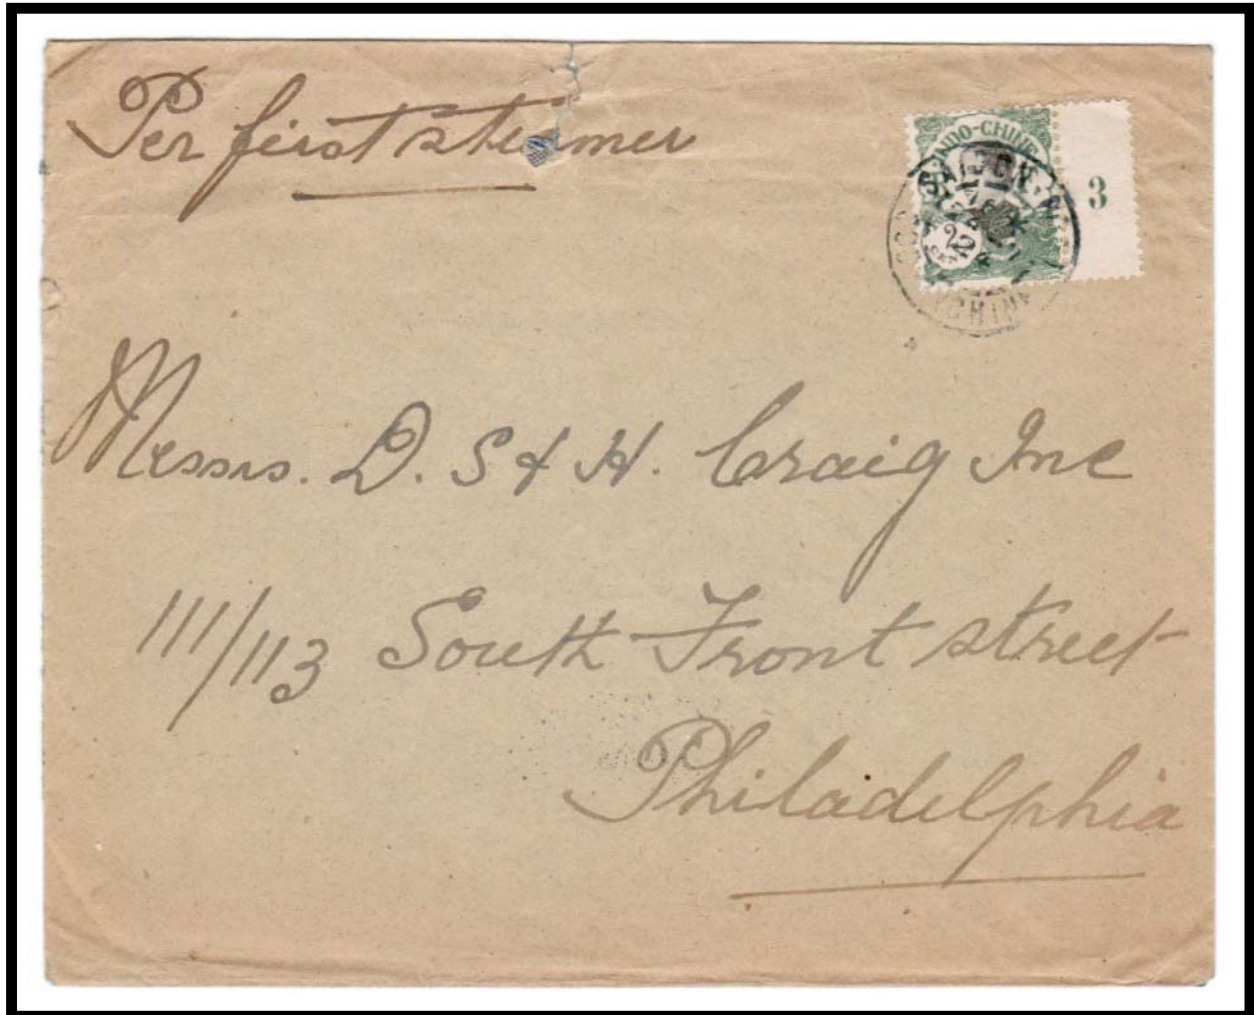 Per first steamer
INDO-CHINE
3
SAIGON
COCHINCHINE
2
CEN
Messrs. D. S & H. Craig Inc
111/113 South Front street
Philadelphia